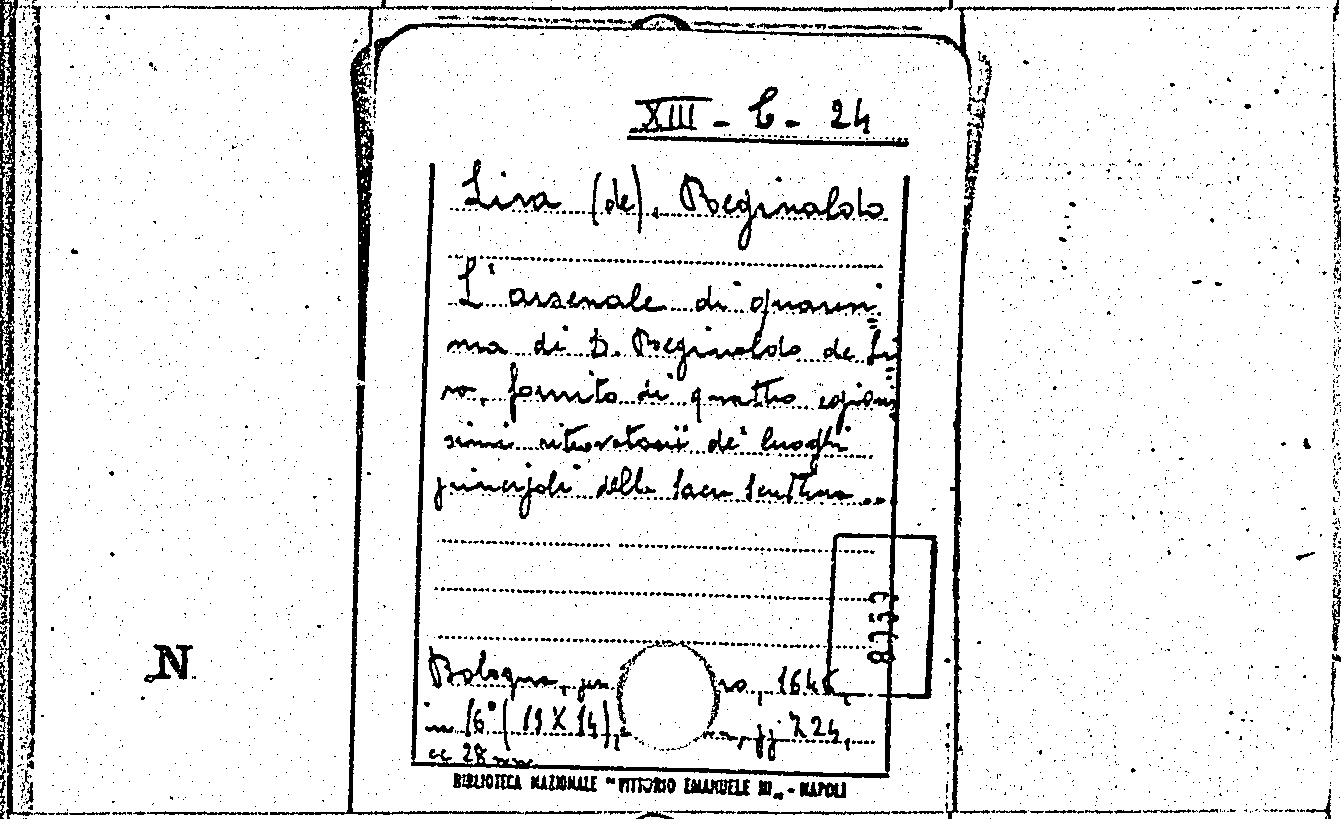 XIII - C - 24
Lira (de), Reginaldo
L'arsenale di quaresi
ma di D. Reginaldo de Li
ro, fornito di quattro copiosis
simi ritrovatorii de' luoghi
principali della Sacra Scrittura ...
8757
N
Bologna, ro, 1645,
in 16° (19 X 14), pp 724,
cc 28 nn.
BIBLIOTECA NAZIONALE "VITTORIO EMANUELE III" - NAPOLI